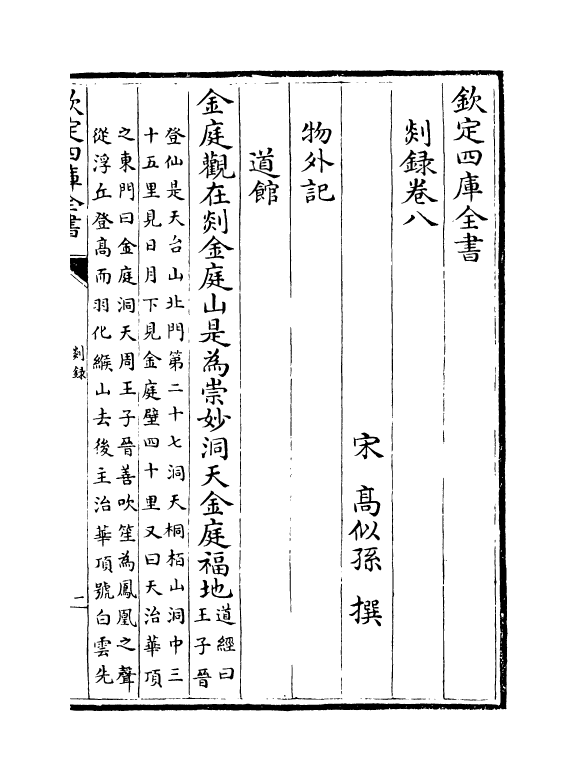 欽定四庫全書
剡録卷八
宋 髙似孫 撰
物外記
道館
金庭觀在剡金庭山是為崇妙洞天金庭福地道經曰
王子晉
登仙是天台山北門第二十七洞天桐栢山洞中三
十五里見日月下見金庭壁四十里又曰天治華頂
之東門曰金庭洞天周王子晉善吹笙為鳳凰之聲
從浮丘登髙而羽化緱山去後主治華頂號白雲先
欽定四庫全書
剡録